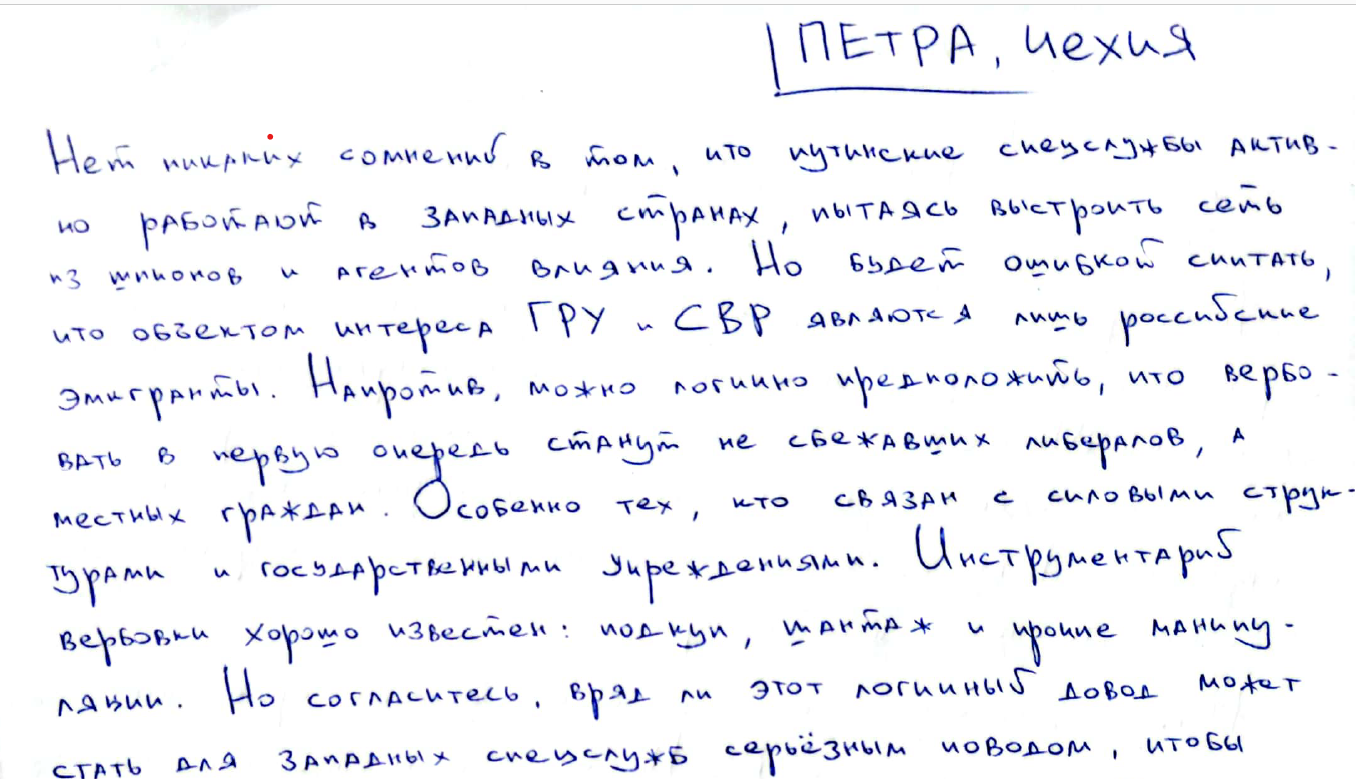 ПЕТРА, Чехия
Нет никаких сомнений в том, что путинские спецслужбы актив-
но работают в западных странах, пытаясь выстроить сеть
из шпионов и агентов влияния. Но будет ошибкой считать,
что объектом интереса ГРУ и СВР являются лишь российские
эмигранты. Напротив, можно логично предположить, что вербо-
вать в первую очередь станут не сбежавших либералов, а
местных граждан. Особенно тех, кто связан с силовыми струк-
турами и государственными учреждениями. Инструментарий
вербовки хорошо известен: подкуп, шантаж и прочие манипу-
ляции. Но согласитесь, вряд ли этот логичный довод может
стать для западных спецслужб серьёзным поводом, чтобы